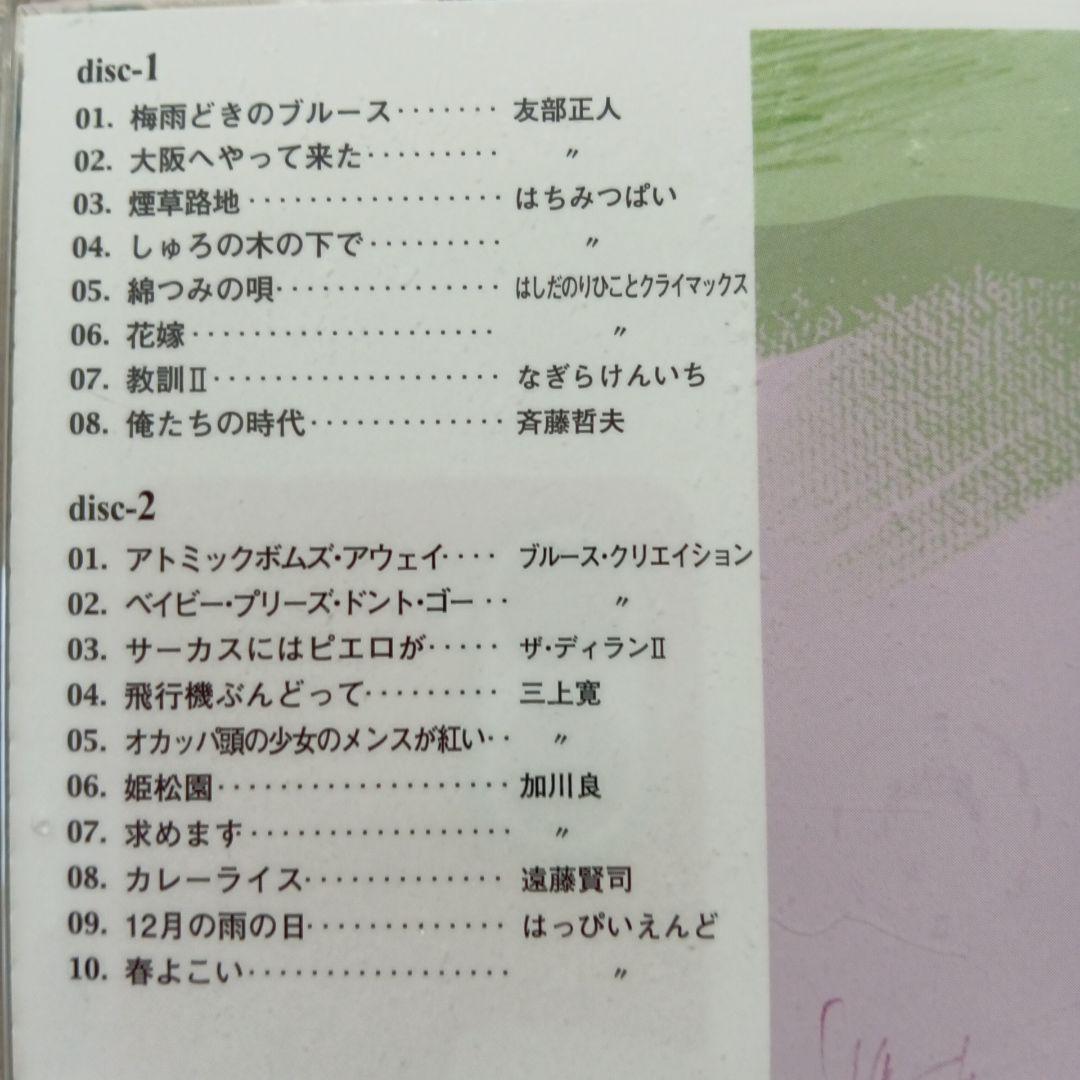 disc-1
01. 梅雨どきのブルース······· 友部正人
02. 大阪へやって来た········· 〃
03. 煙草路地·················· はちみつぱい
04. しゅろの木の下で········· 〃
05. 綿つみの唄··············· はしだのりひことクライマックス
06. 花嫁····················· 〃
07. 教訓Ⅱ···················· なぎらけんいち
08. 俺たちの時代·············· 斉藤哲夫
disc-2
01. アトミックボムズ・アウェイ···· ブルース・クリエイション
02. ベイビー・プリーズ・ドント・ゴー·· 〃
03. サーカスにはピエロが····· ザ・ディランⅡ
04. 飛行機ぶんどって········· 三上寛
05. オカッパ頭の少女のメンスが紅い·· 〃
06. 姫松園···················· 加川良
07. 求めます·················· 〃
08. カレーライス·············· 遠藤賢司
09. 12月の雨の日·············· はっぴいえんど
10. 春よこい·················· 〃